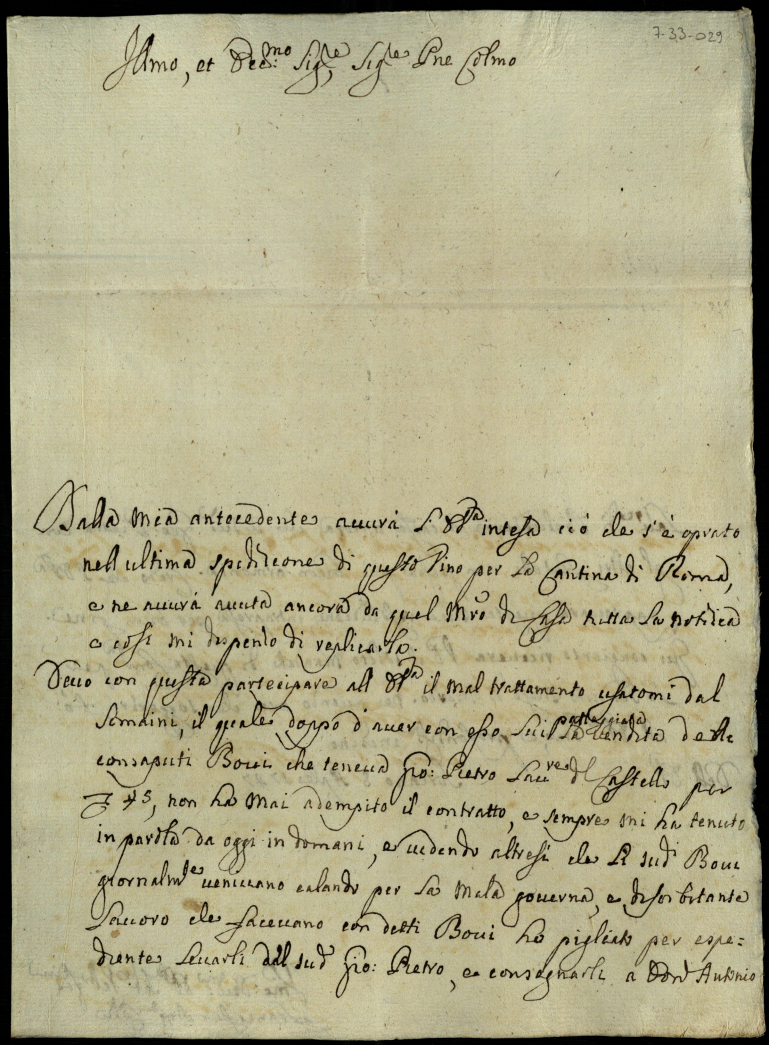 7-33-029
Illmo, et Rev:mo Sig:re, Sig:re Pne Colmo
Dalla mia antecedente avurà intesa ciò che s'è oprato
nell ultima spedizione di questo Vino per la Cantina di Roma,
e ne avurà avuta ancora da quel Mro di Casa tutta la notizia
e così mi dispenso di replicarla.
Devo con questa partecipare all il mal trattamento usatomi dal
Semaini, il quale doppo d'aver con esso Lui patteggiata la vendita delli
consaputi Bovi che teneva Gio: Pietro Lavre del Castello per
45, non ha mai adempito il contratto, e sempre mi ha tenuto
in parola da oggi in domani, e vedendo altresì che li sudi Bovi
giornalmte venivano calando per la mala governa, e disorbitante
lavoro che facevano con detti Bovi ho pigliato per espe=
diente levarli dal sudo Gio: Pietro, e consegnarli a Antonio